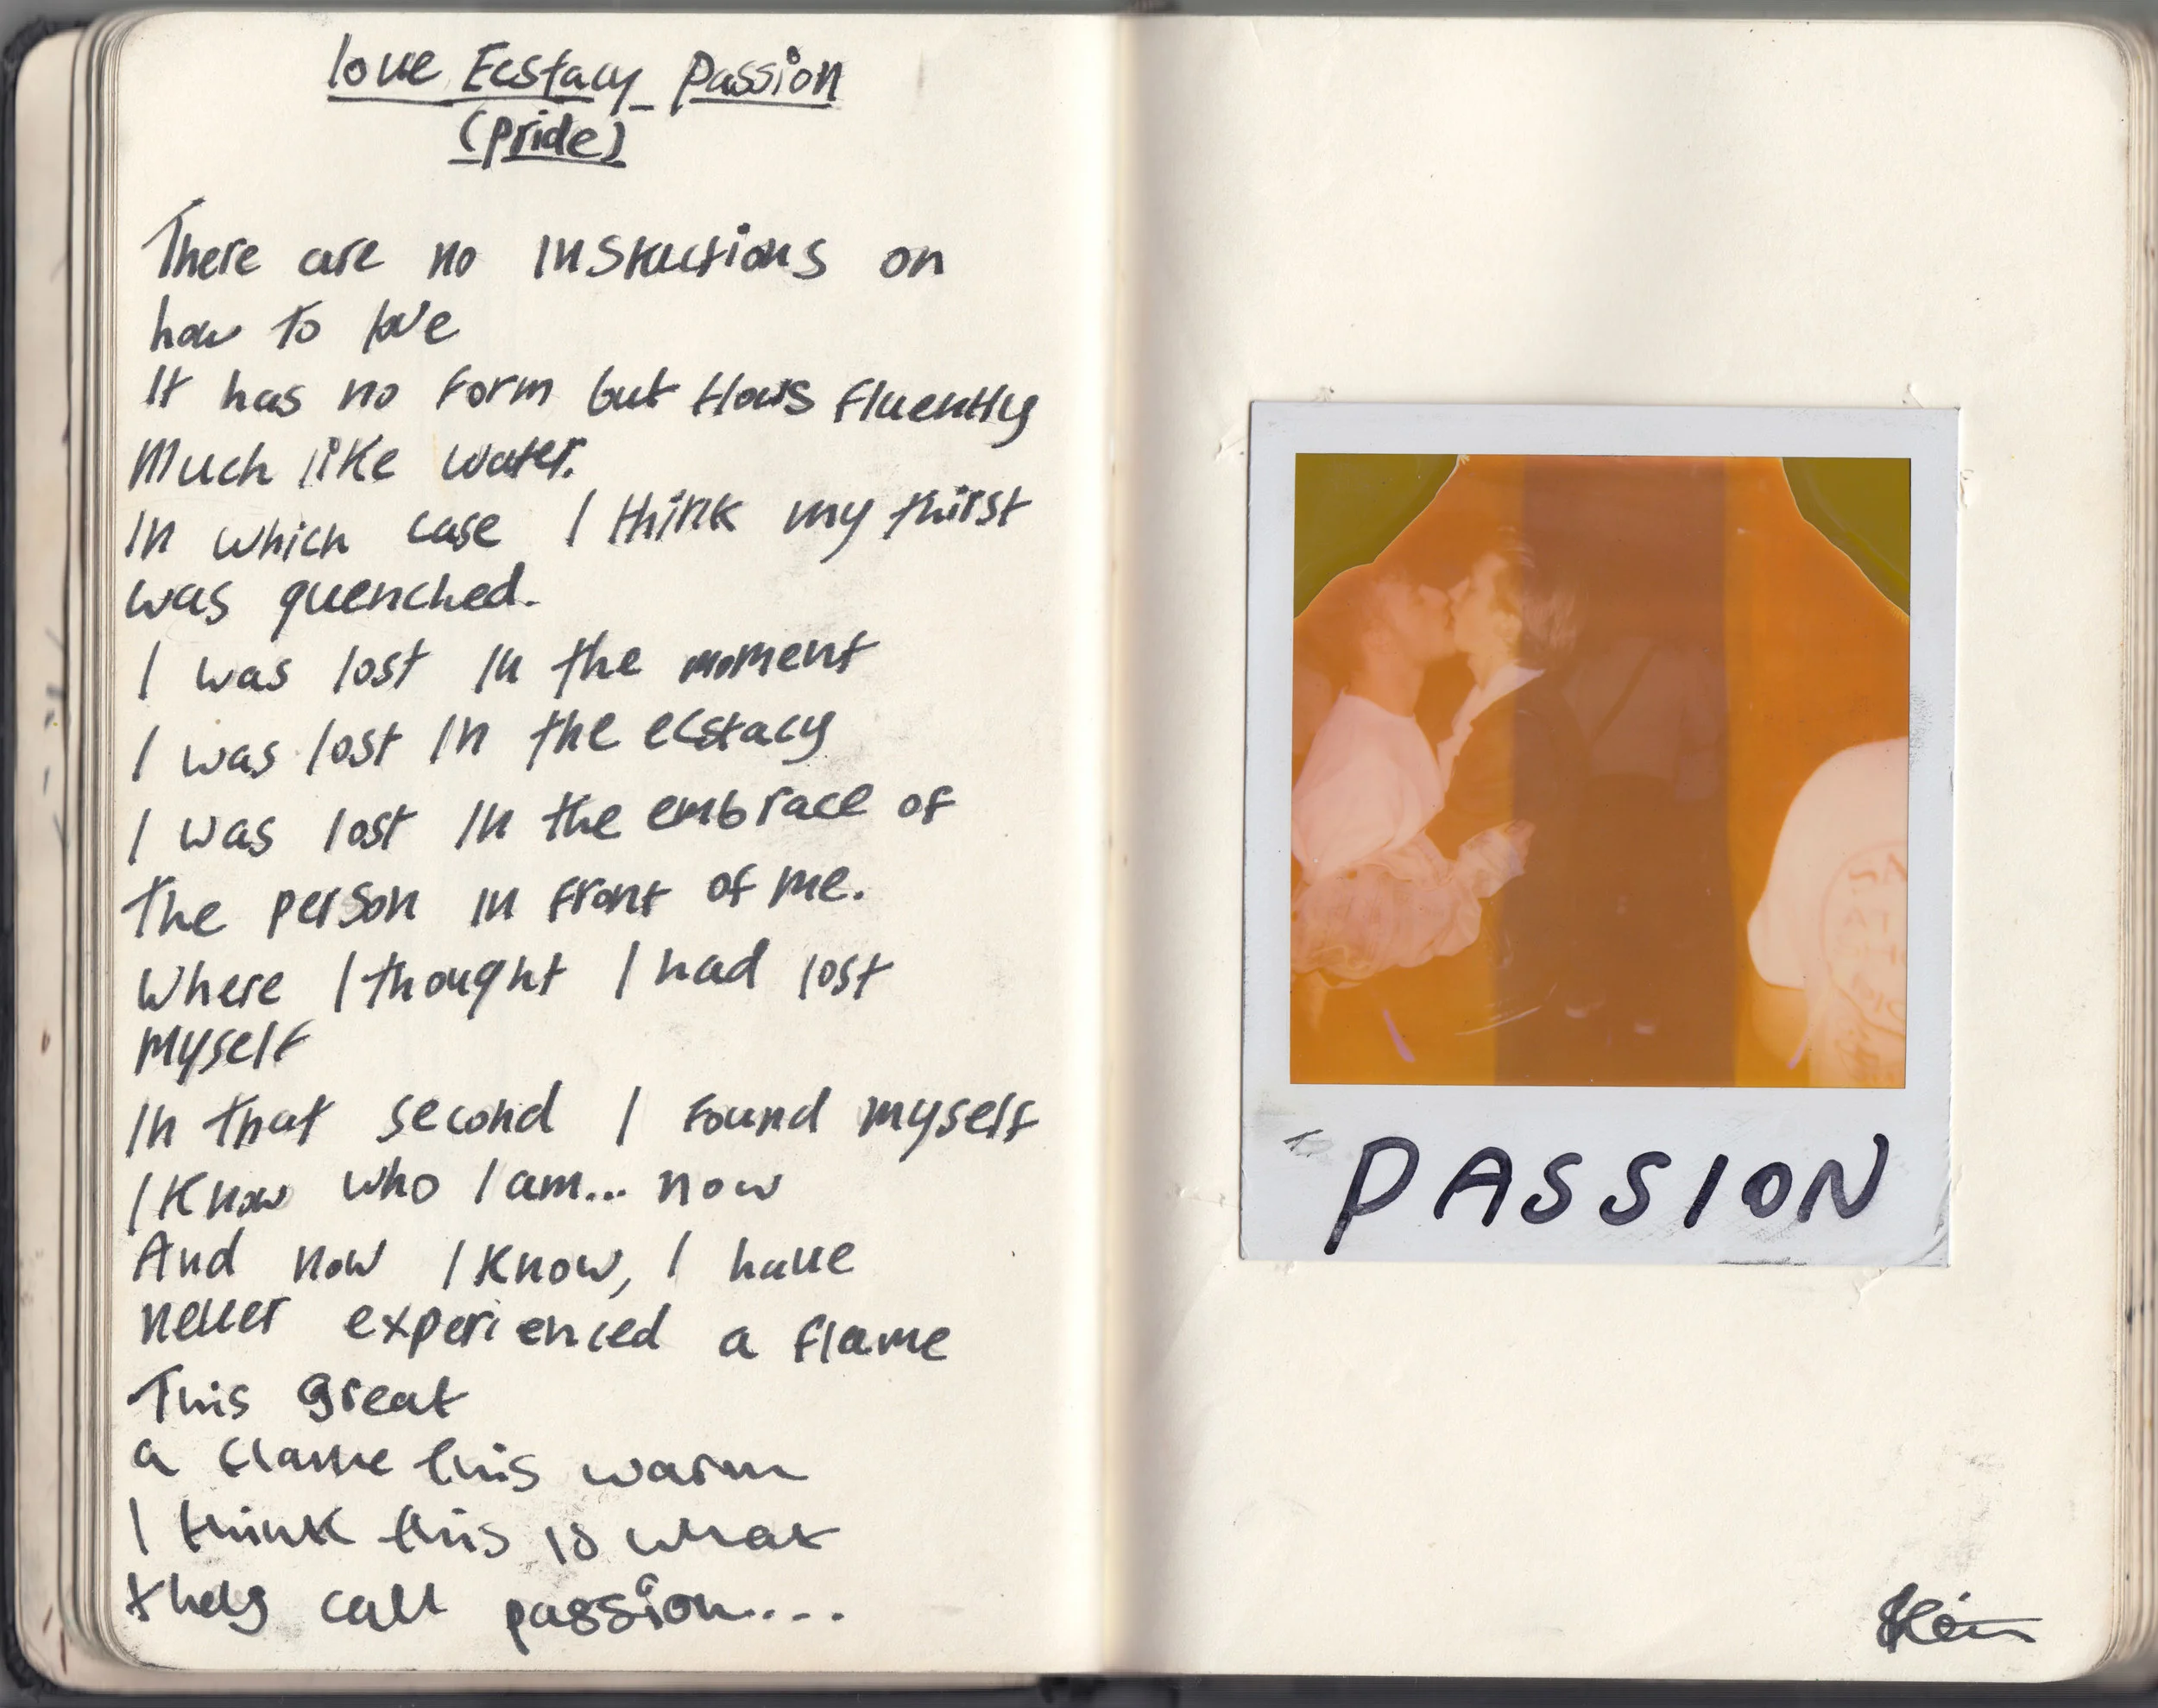 love Ecstacy Passion
(pride)
There are no Instructions on
how to love
It has no form but flows fluently
Much like water.
In which case I think my thirst
was quenched.
I was lost in the moment
I was lost in the ecstacy
I was lost in the embrace of
the person in front of me.
Where I thought I had lost
myself
In that second I found myself
I Know who I am... now
And now I Know, I have
never experienced a flame
This great
a flame this warm
I think this is what
they call passion....
PASSION